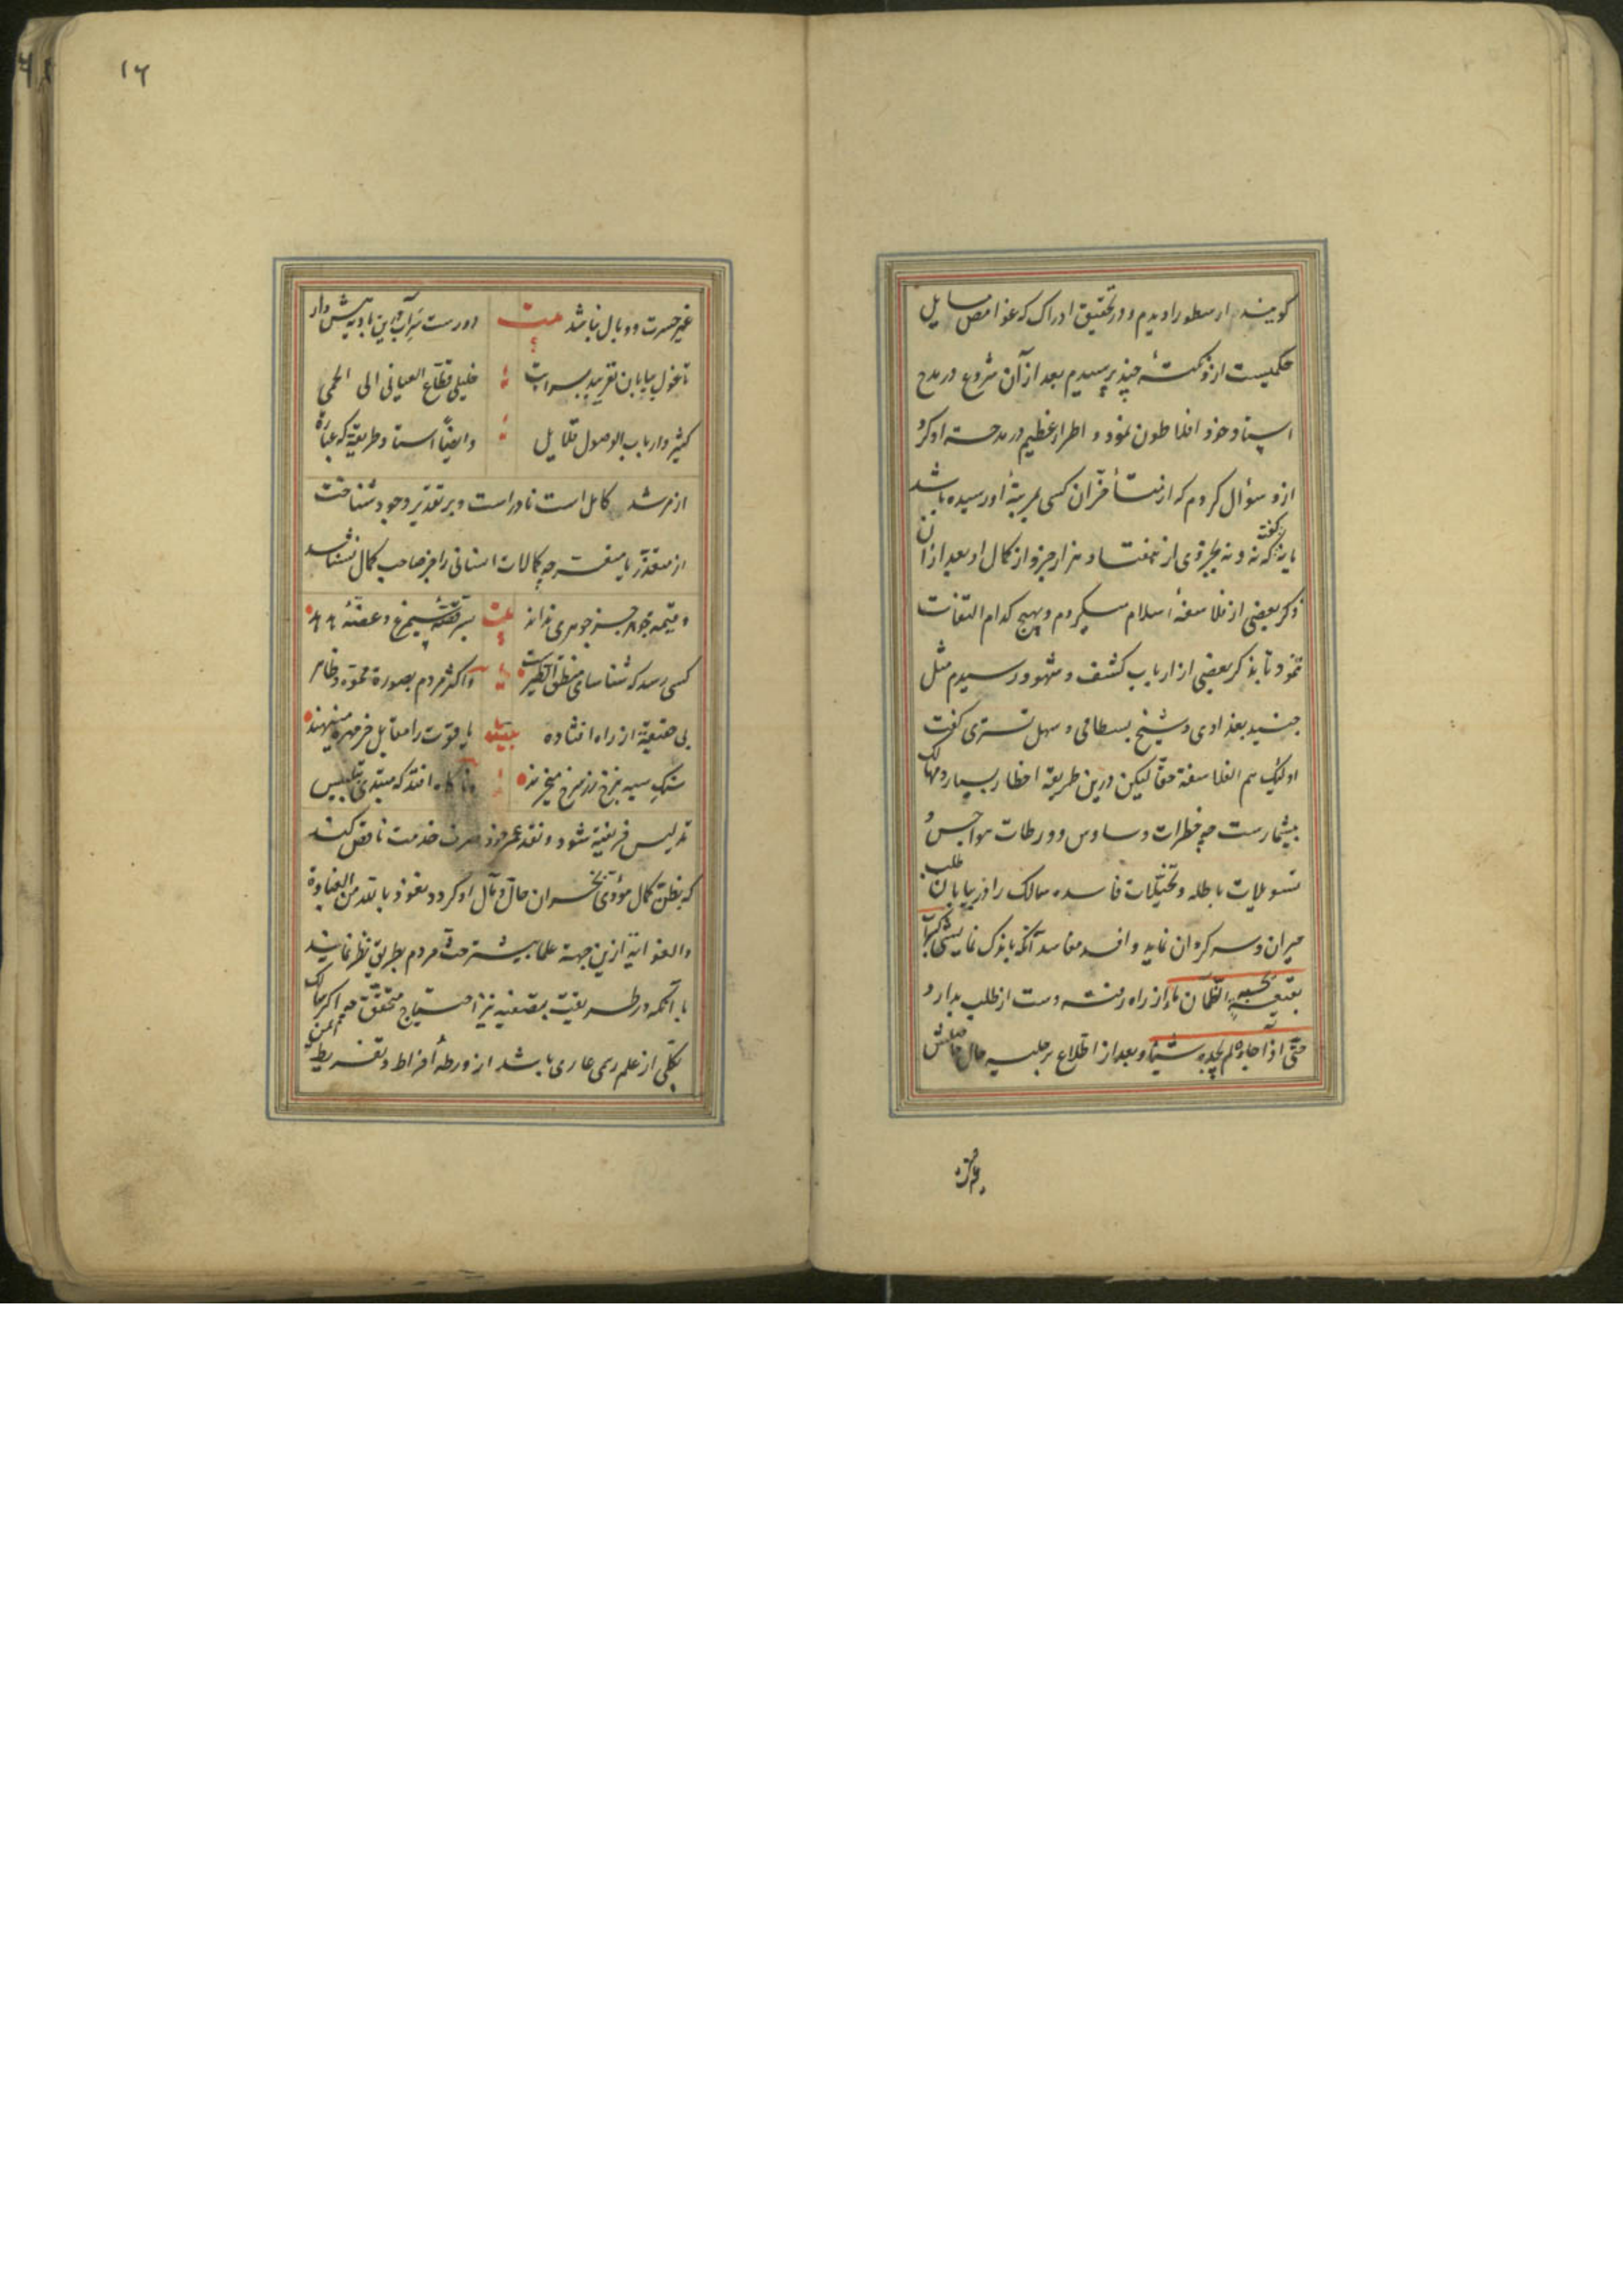 کویند ارسطو را دیدم و در تحقیق ادراک که غوامض مسایل
حکمیست ازو نکتهٔ چند پرسیدم بعد از آن شروع در مدح
استاد خود افلاطون نمود و اطراء عظیم در مدحت او کرد
ازو سؤال کردم که از متأخران کسی بمرتبهٔ او رسیده باشد
یا نه گفت که نه و نه بجزوی از هفتاد هزار جزو از کمال او بعد از آن
ذکر بعضی از فلاسفهٔ اسلام میکردم و بهیچ کدام التفات
ننمود تا بذکر بعضی از ارباب کشف و شهود رسیدم مثل
جنید بغدادی و شیخ بسطامی و سهل تستری گفت
اولیک هم الفلاسفة حقّا لیکن درین طریقه اخطار بسیار و مهالک
بیشمارست چه خطرات وساوس و ورطات هواجس و
تسویلات باطله و تخیّلات فاسده سالک را در بیابان طلب
حیران و سرکردان نماید و افسد مفاسد آنکه باندک نمایشی کسراب
بقیعة یحسبه الظمآن ماء از راه رفته دست از طلب بدارد
حتّی اذا جاءه لم یجده شیئا و بعد از اطّلاع بر جلیه حال حاصلش
۱۶
غیر حسرت و وبال نباشد بیت دورست سرآب درین بادیه هش دار
تا غول بیابان نفریبد بسرابت خلیلی قطّاع الفیافی الی الحمی
کثیر و ارباب الوصول قلایل و ایضاً استاد طریقه که عبارة
از مرشد کامل است نادر است و بر تقدیر وجود شناخت
از متعذّر یا متعسر چه کمالات انسانی را جز صاحب کمال نشناسد
و قیمه جوهر جز جوهری نداند بیت سر قصّهٔ سیمرغ و غصّهٔ هدهد
کسی رسد که شناسای منطق الطیرست و اکثر مردم بصورة مموّه و ظاهر
بی حقیقة از راه افتاده یاقوت را مقابل خرمهره مینهند
سنک سیه بنرخ زر سرخ میخرند و ناکاه افتد که مبتدی بتلبیس
تدلیس فریفته شود و نقد عمر خود صرف خدمت ناقص کند
که بظنّ کمال مؤدّی بخسران حال و مآل او کردد نعوذ بالله من الغباوة
والغوایة ازین جهة علما بیشتر حثّ مردم بطریق نظر نمایند
با آنکه در طریقت تصفیه نیز احتیاج متحقّق چه اکر سالک
بکلّی از علم رسمی عاری باشد از ورطهٔ افراط و تفریط ایمن